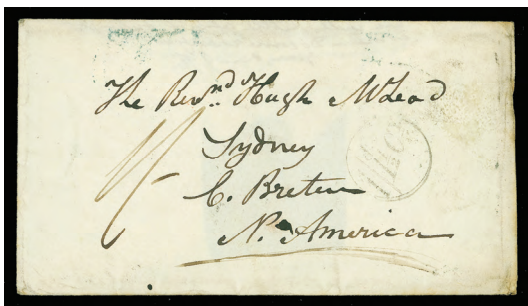 The Revnd. Hugh McLeod
Sydney
C. Breton
N. America
1/-